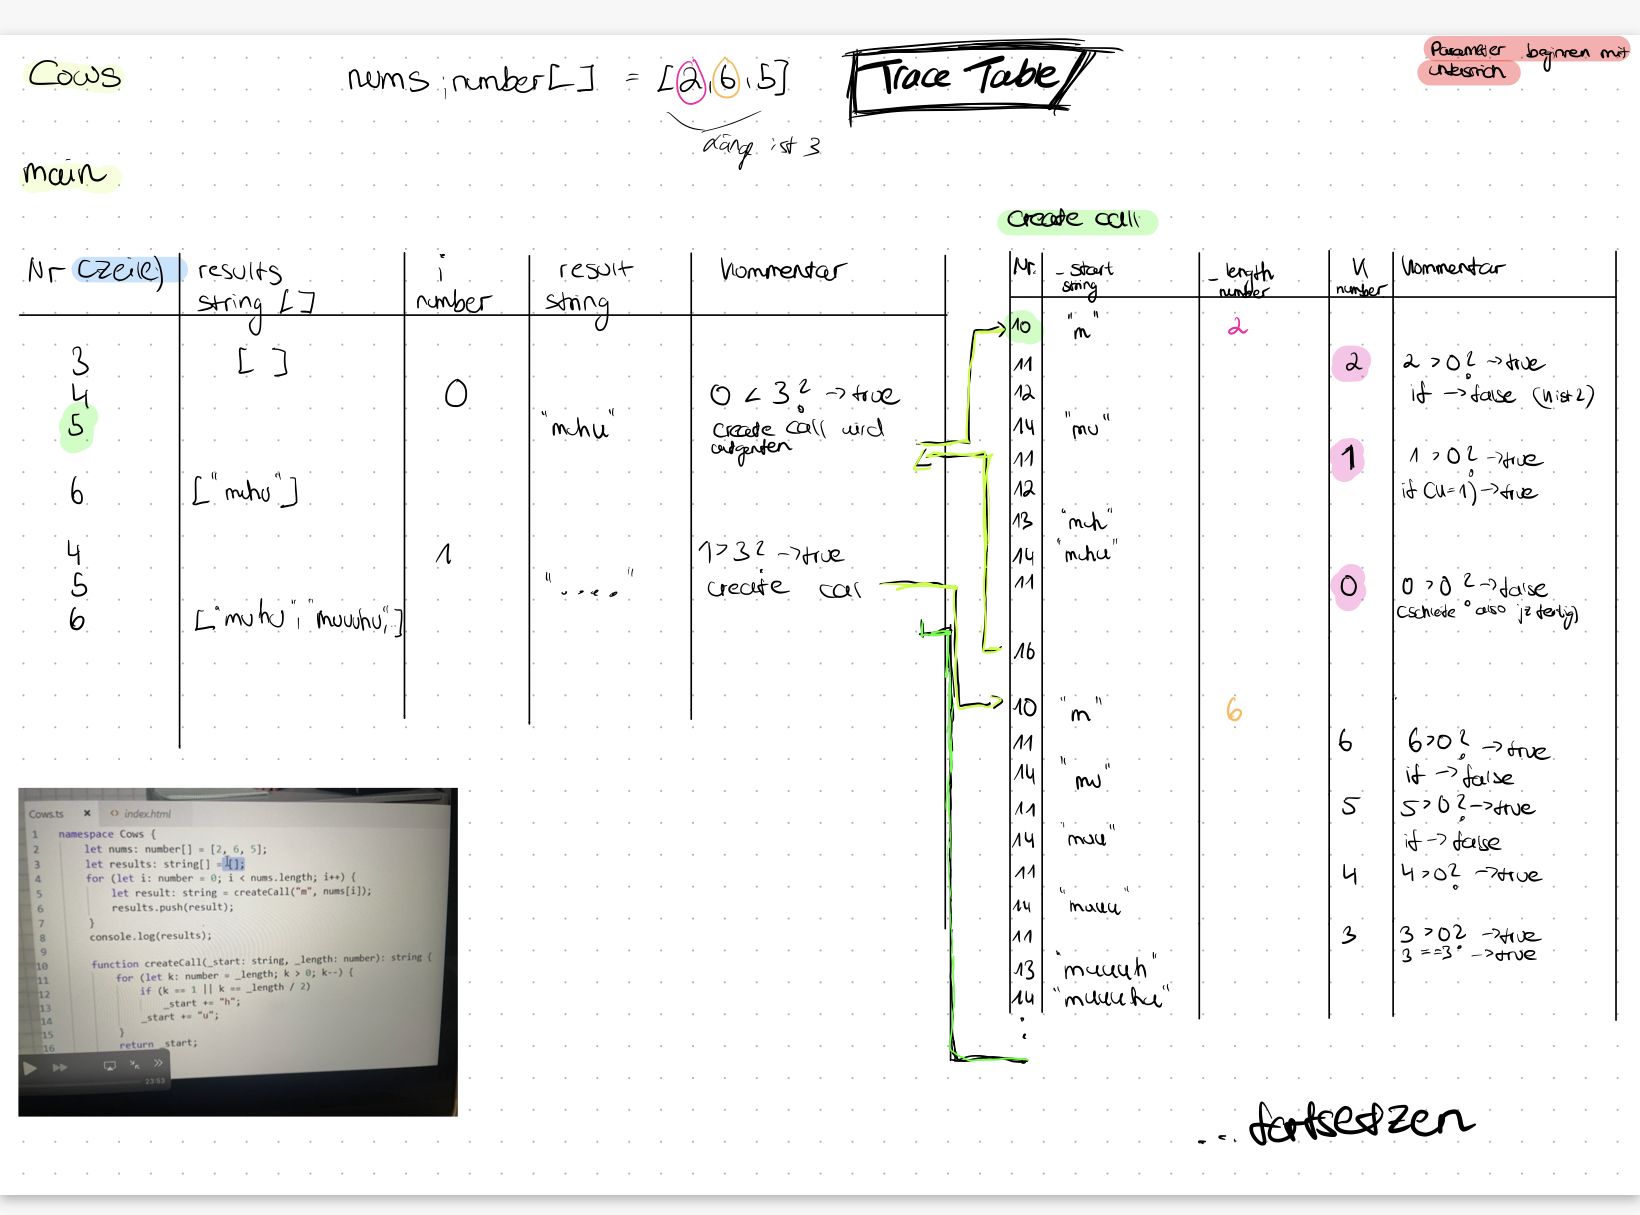 Cows
nums : number [ ] = [2, 6, 5]
Länge ist 3
Trace Table
Parameter beginnen mit
Unterstrich
main
Nr (Zeile) results string [ ] i number result string Kommentar
3 [ ]
4 0 0 < 3? → true
5 "mchu" create call wird
aufgerufen
6 ["muhu"]
4 1 1 > 3? → true
5 "...." create cal
6 ["muhu", "muuuhu",]
create call
Nr. _start string _length number K number Kommentar
10 "m" 2
11 2 2 > 0? → true
12 if → false (k ist 2)
14 "mu"
11 1 1 > 0? → true
12 if (k=1) → true
13 "muh"
14 "muhu"
11 0 0 > 0? → false
(schleife also jz fertig)
16
10 "m" 6
11 6 6 > 0? → true
14 "mu" if → false
11 5 5 > 0? → true
14 "muu" if → false
11 4 4 > 0? → true
14 "muuu"
11 3 3 > 0? → true
3 == 3 → true
13 "muuuh"
14 "muuuhu"
... fortsetzen
Cows.ts × <> index.html
1 namespace Cows {
2 let nums: number[] = [2, 6, 5];
3 let results: string[] = [];
4 for (let i: number = 0; i < nums.length; i++) {
5 let result: string = createCall("m", nums[i]);
6 results.push(result);
7 }
8 console.log(results);
9
10 function createCall(_start: string, _length: number): string {
11 for (let k: number = _length; k > 0; k--) {
12 if (k == 1 || k == _length / 2)
13 _start += "h";
14 _start += "u";
15 }
16 return _start;
23:53